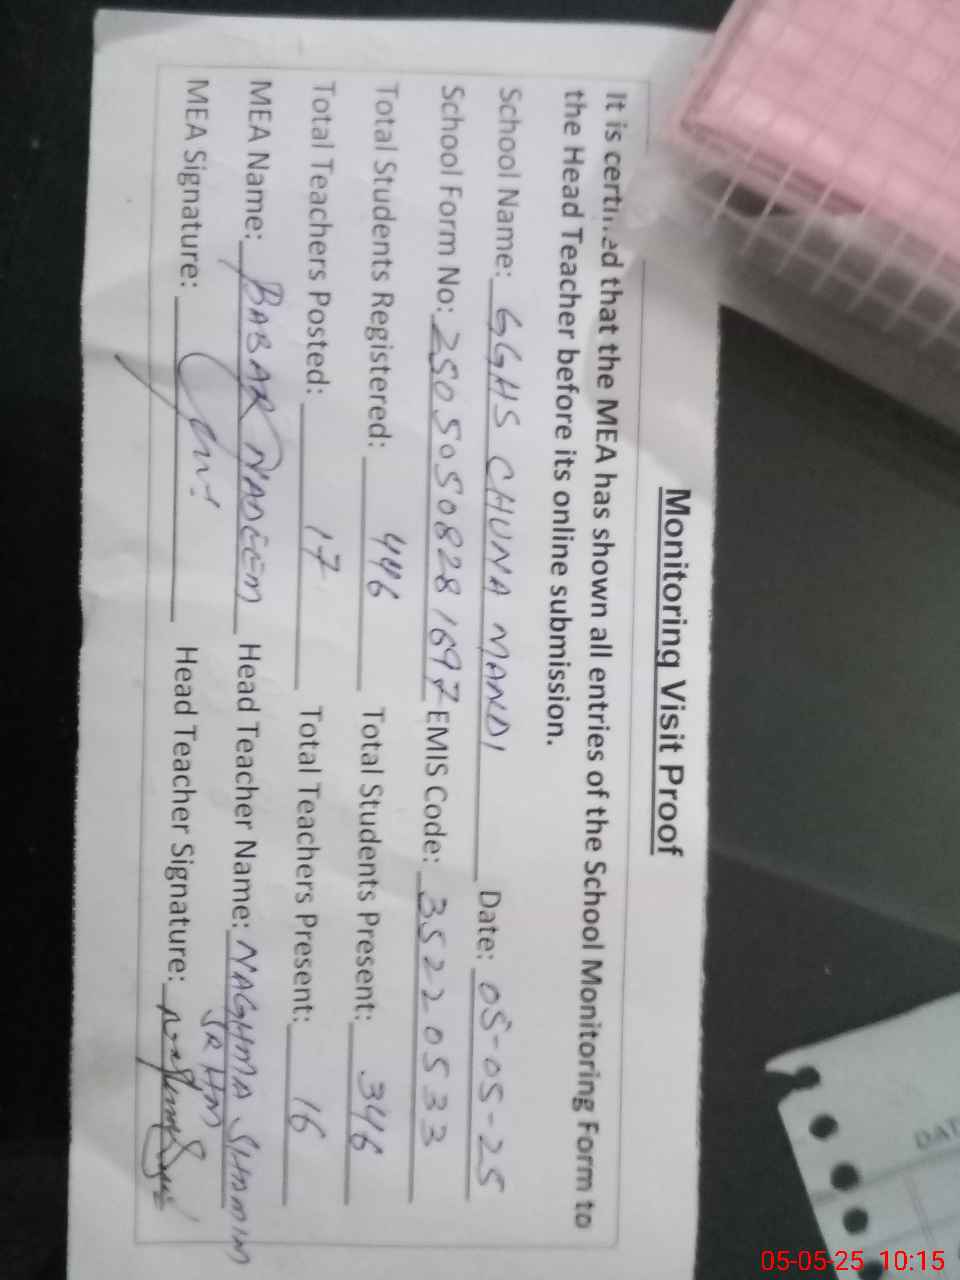 Monitoring Visit Proof
It is certified that the MEA has shown all entries of the School Monitoring Form to
the Head Teacher before its online submission.
School Name: GGHS CHUNA MANDI Date: 05-05-25
School Form No: 25050508281697 EMIS Code: 35220533
Total Students Registered: 446 Total Students Present: 346
Total Teachers Posted: 17 Total Teachers Present: 16
MEA Name: BABAR NADEEM Head Teacher Name: NAGHMA SHAMIM
SR HM
MEA Signature: Head Teacher Signature:
DAT
05-05-25 10:15